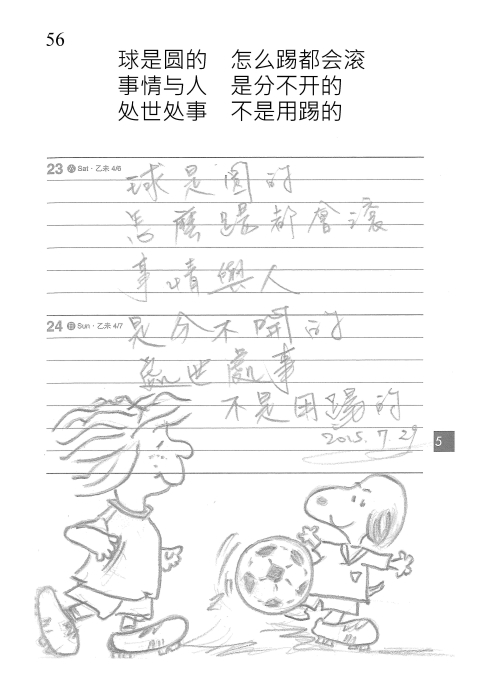 56
球是圆的　怎么踢都会滚
事情与人　是分不开的
处世处事　不是用踢的
23 六 Sat · 乙未 4/6
球是圓的
怎麼踢都會滾
事情與人
24 日 Sun · 乙未 4/7
是分不開的
處世處事
不是用踢的
2015.7.29
5